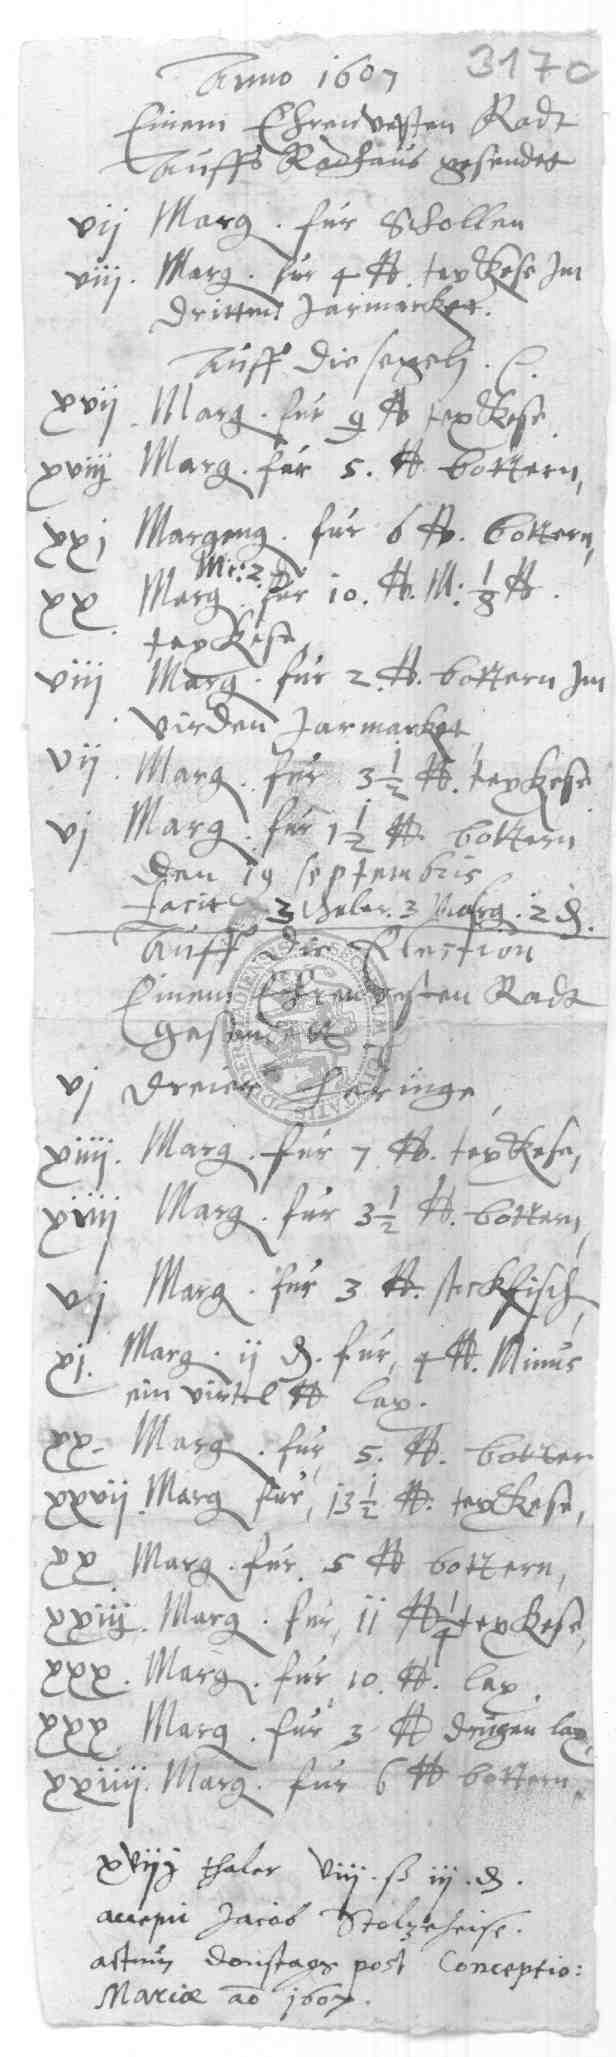 Anno 1607 3170
Einem Ehrenvesten Radt
Auffs Radhaus gesendet
vij Marg. fur Schollen
viij. Marg. fur 4 ℔. texkese Im
dritten Jarmarket.
Auff die
xvij Marg. fur 9 ℔ texkese
xviij Marg. fur 5. ℔ bottern,
xxj Margeng. fur 6 ℔. bottern,
Mr: 2. ₰
xx Marg fur 10. ℔. M: 1/8 ℔.
texkese
viij Marg. fur 2. ℔. bottern Im
virden Jarmarket
vij. Marg. fur 3 1/2 ℔. texkese
vj Marg. fur 1 1/2 ℔. bottern
den 19 septembris
facit 3 thaler. 3 Marg. 2 ₰.
Auff die Election
Einem Ehrenvesten Radt
gesendett
vj dreier heringe
xiiij. Marg. fur 7 ℔. texkese,
xiiij Marg. fur 3 1/2 ℔. bottern,
vj Marg. fur 3 ℔. stockfisch,
xj. Marg. ij ₰. fur, 4 ℔. Minus
ein virtel ℔ lax.
xx. Marg. fur, 5. ℔. botter
xxvij. Marg fur, 13 1/2 ℔. texkese,
xx Marg. fur. 5 ℔ bottern,
xxiij. Marg. fur, 11 ℔ 1/4 texkese,
xxx. Marg. fur, 10. ℔. lax.
xxx Marg. fur 3 ℔ drugen lax,
xxiiij. Marg. fur 6 ℔ bottern.
xviij thaler viij. ß iij. ₰.
accepi Jacob Stolzeheise.
actum donstags post Conceptio:
Mariæ ao 1607.